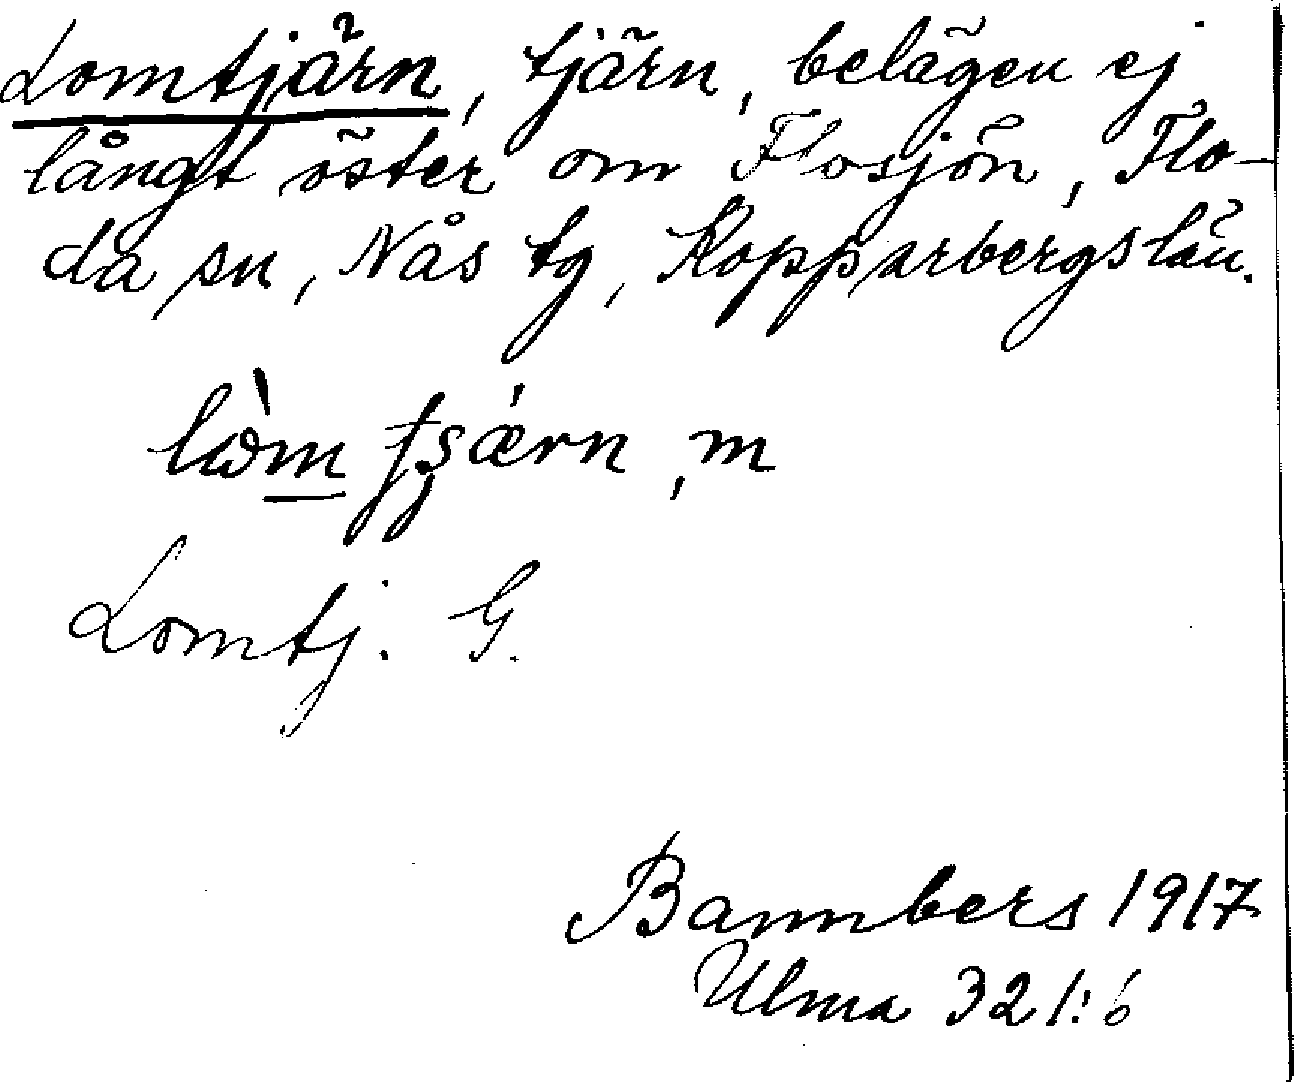 Lomtjärn, tjärn, belägen ej
långt öster om Flosjön, Flo-
da sn, Nås tg, Kopparbergs län.
lòm ʈʂǽrn, m
Lomtj. G.
Bannbers 1917
Ulma 321:6